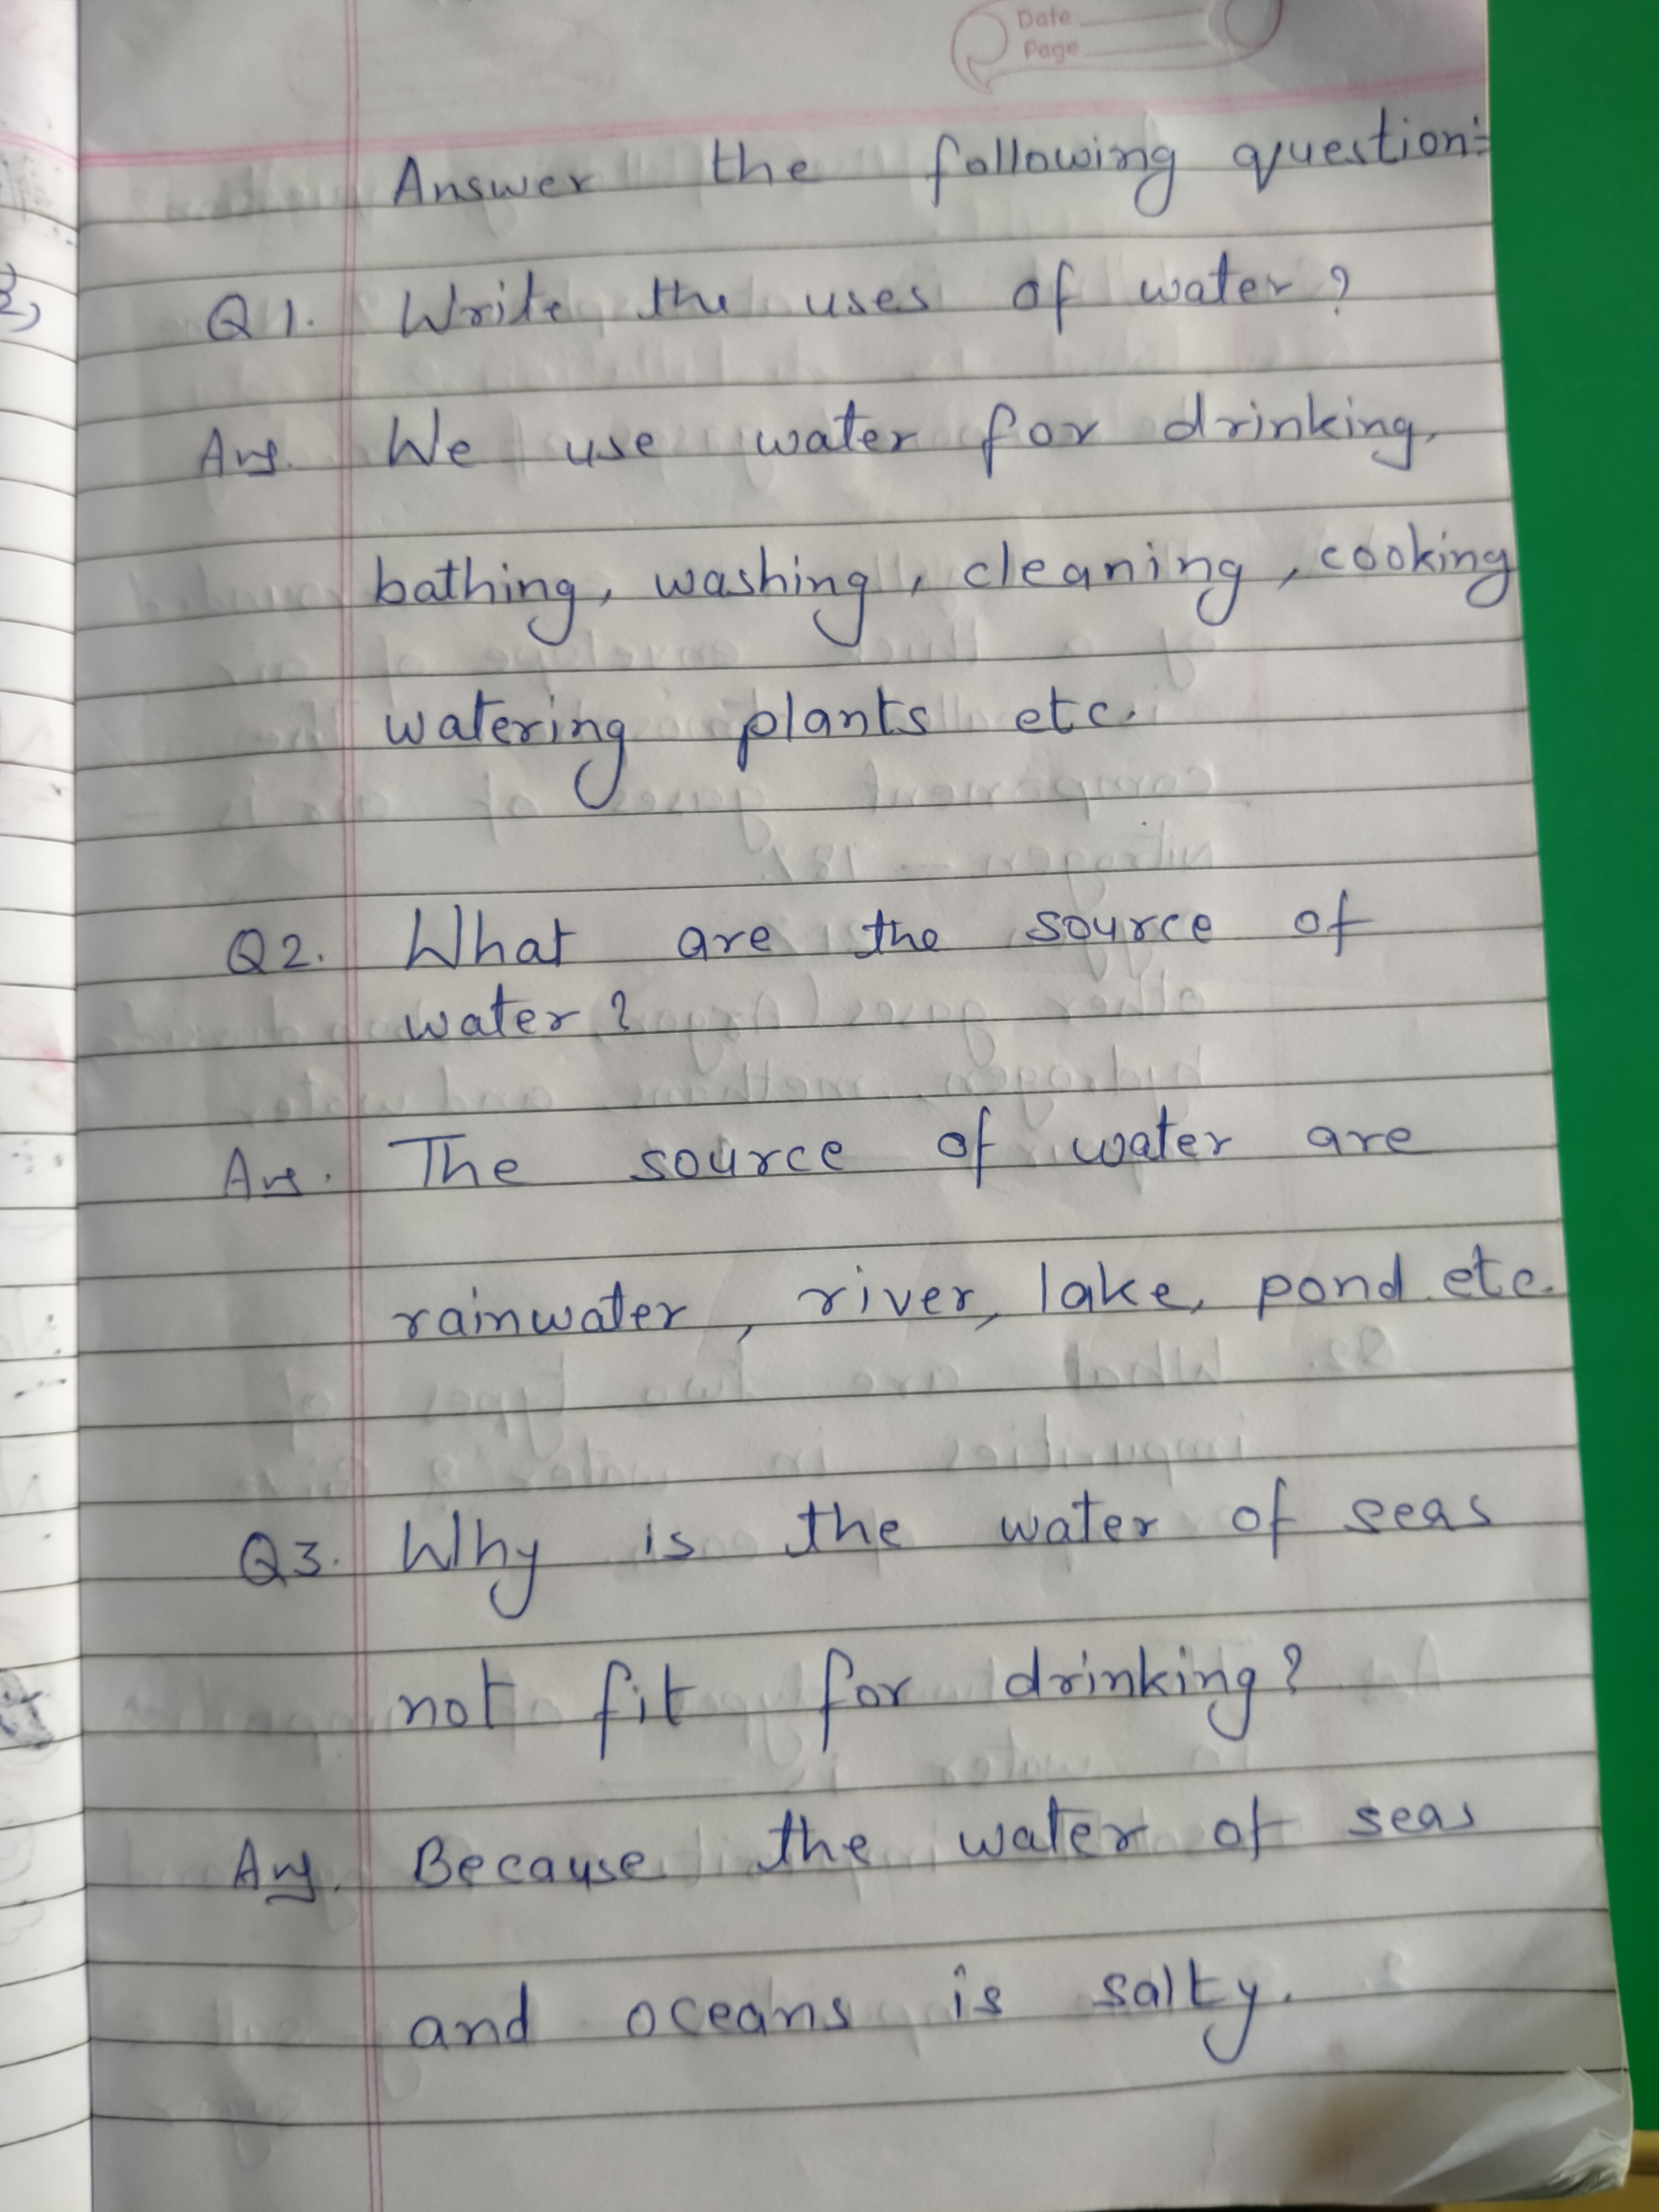 Date
Page
Answer the following question:-
Q1. Write the uses of water?
Ans. We use water for drinking,
bathing, washing, cleaning, cooking
watering plants etc.
Q2. What are the source of
water?
Ans. The source of water are
rainwater, river, lake, pond etc.
Q3. Why is the water of seas
not fit for drinking?
Ans. Because the water of seas
and oceans is salty.